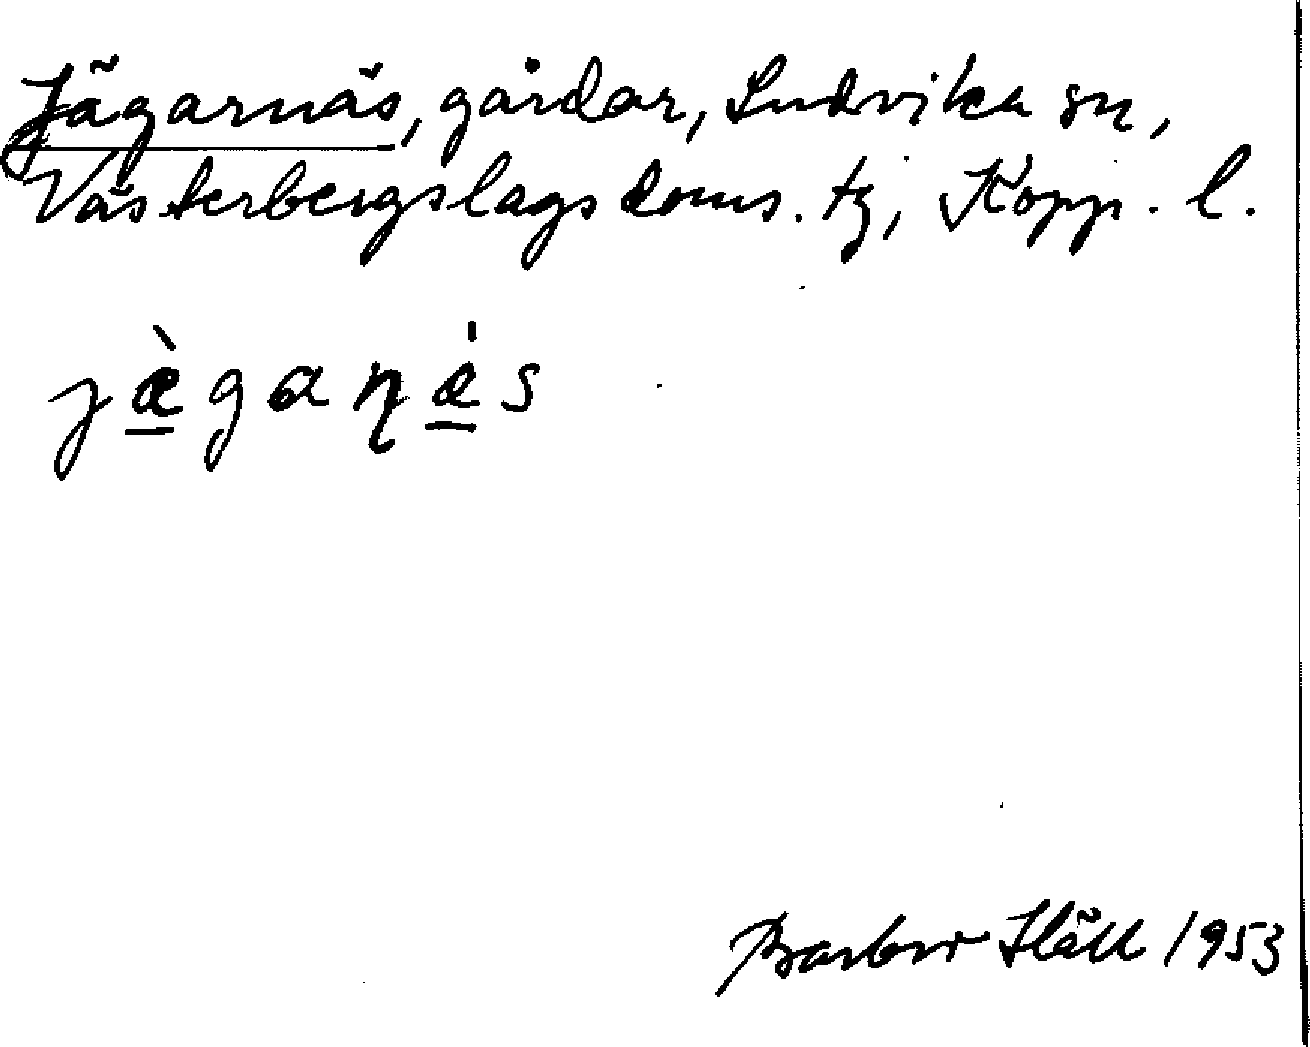 Jägarnäs, gårdar, Ludvika sn,
Västerbergslags doms. tg, Kopp. l.
jæ̀ganǽs
Barbro Häll 1953